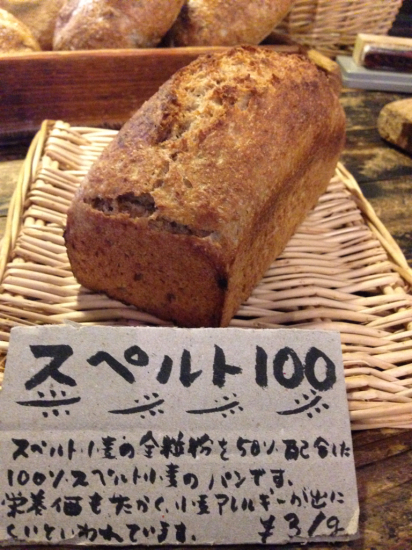 スペルト100
スペルト小麦の全粒粉を50%配合した
100%スペルト小麦のパンです。
栄養価も高く、小麦アレルギーが出に
くいといわれています。 ¥3/g